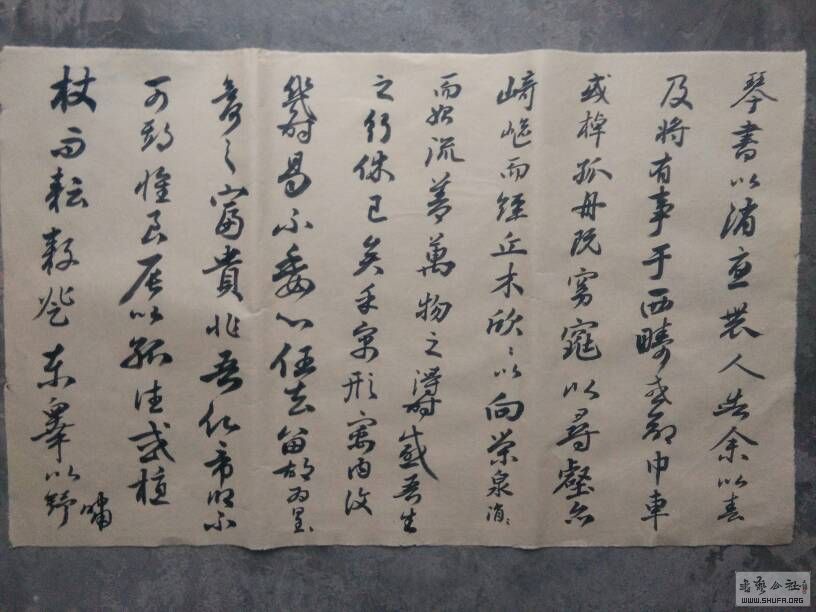 琴書以消憂農人告余以春
及將有事于西疇或命巾車
或棹孤舟既窈窕以尋壑亦
崎嶇而經丘木欣〻以向榮泉涓〻
而始流善萬物之得時感吾生
之行休已矣乎寓形寓內復
幾時曷不委心任去留胡為遑
富貴非吾願帝鄉不
可期懷良辰以孤往或植
杖而耘耔登東皋以舒嘯
書藝公社
WWW.SHUFA.ORG